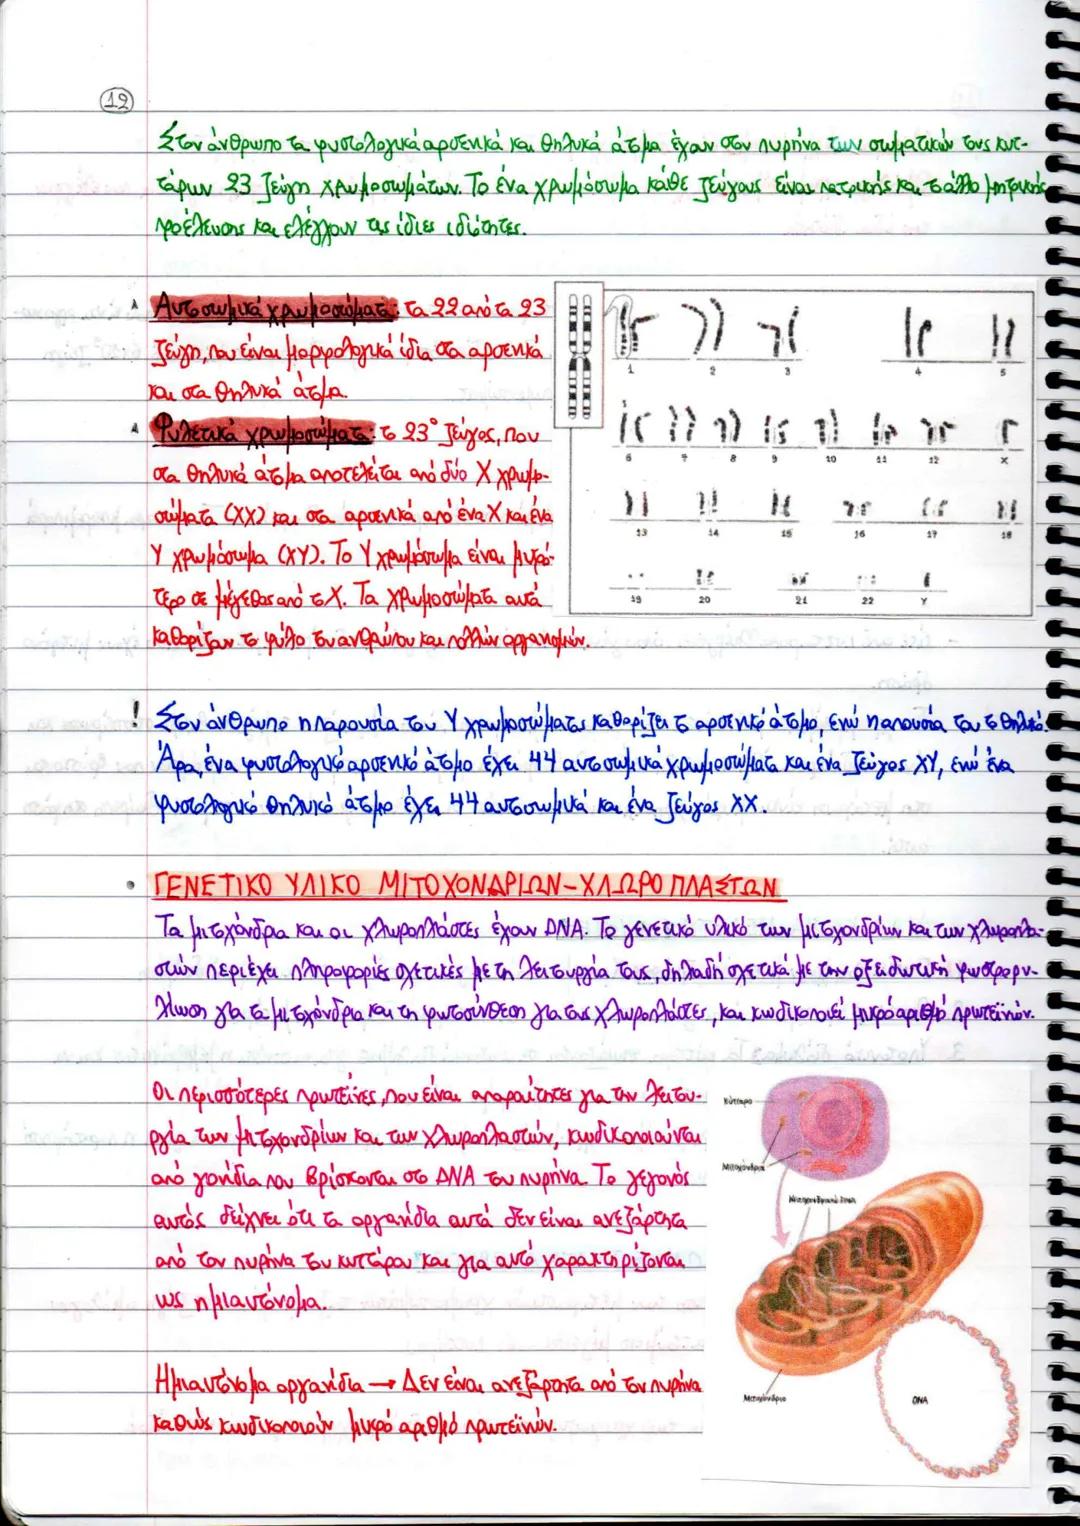 12
Στον άνθρωπο τα φυσιολογικά αρσενικά και θηλυκά άτομα έχουν στον πυρήνα των σωματικών τους κυτ-
τάρων 23 ζεύγη χρωμοσωμάτων. Το ένα χρωμόσωμα κάθε ζεύγους είναι πατρικής και το άλλο μητρικής
προέλευσης και ελέγχουν τις ίδιες ιδιότητες.
Αυτοσωμικά χρωμοσώματα: τα 22 από τα 23
ζεύγη, που είναι μορφολογικά ίδια στα αρσενικά
και στα θηλυκά άτομα.
Φυλετικά χρωμοσώματα: το 23° ζεύγος, που
στα θηλυκά άτομα αποτελείται από δύο Χ χρωμο-
σώματα (ΧΧ) και στα αρσενικά από ένα Χ και ένα
Υ χρωμόσωμα (ΧΥ). Το Υ χρωμόσωμα είναι μικρό-
τερο σε μέγεθος από το Χ. Τα χρωμοσώματα αυτά
καθορίζουν το φύλο του ανθρώπου και πολλών οργανισμών.
1 2 3 4 5
6 7 8 9 10 11 12 X
13 14 15 16 17 18
19 20 21 22 Y
! Στον άνθρωπο η παρουσία του Υ χρωμοσώματος καθορίζει το αρσενικό άτομο, ενώ η απουσία του το θηλυκό.
Άρα, ένα φυσιολογικό αρσενικό άτομο έχει 44 αυτοσωμικά χρωμοσώματα και ένα ζεύγος ΧΥ, ενώ ένα
φυσιολογικό θηλυκό άτομο έχει 44 αυτοσωμικά και ένα ζεύγος ΧΧ.
• ΓΕΝΕΤΙΚΟ ΥΛΙΚΟ ΜΙΤΟΧΟΝΔΡΙΩΝ-ΧΛΩΡΟΠΛΑΣΤΩΝ
Τα μιτοχόνδρια και οι χλωροπλάστες έχουν DNA. Το γενετικό υλικό των μιτοχονδρίων και των χλωροπλα-
στών περιέχει πληροφορίες σχετικές με τη λειτουργία τους, δηλαδή σχετικά με την οξειδωτική φωσφορυ-
λίωση για τα μιτοχόνδρια και τη φωτοσύνθεση για τους χλωροπλάστες, και κωδικοποιεί μικρό αριθμό πρωτεϊνών.
Οι περισσότερες πρωτεΐνες, που είναι απαραίτητες για την λειτου-
ργία των μιτοχονδρίων και των χλωροπλαστών, κωδικοποιούνται
από γονίδια που βρίσκονται στο DNA του πυρήνα. Το γεγονός
αυτός δείχνει ότι τα οργανίδια αυτά δεν είναι ανεξάρτητα
από τον πυρήνα του κυττάρου και για αυτό χαρακτηρίζονται
ως ημιαυτόνομα.
Κύτταρο
Μιτοχόνδρια
Μιτοχονδριακό DNA
Μιτοχόνδριο
DNA
Ημιαυτόνομα οργανίδια → Δεν είναι ανεξάρτητα από τον πυρήνα
καθώς κωδικοποιούν μικρό αριθμό πρωτεϊνών.